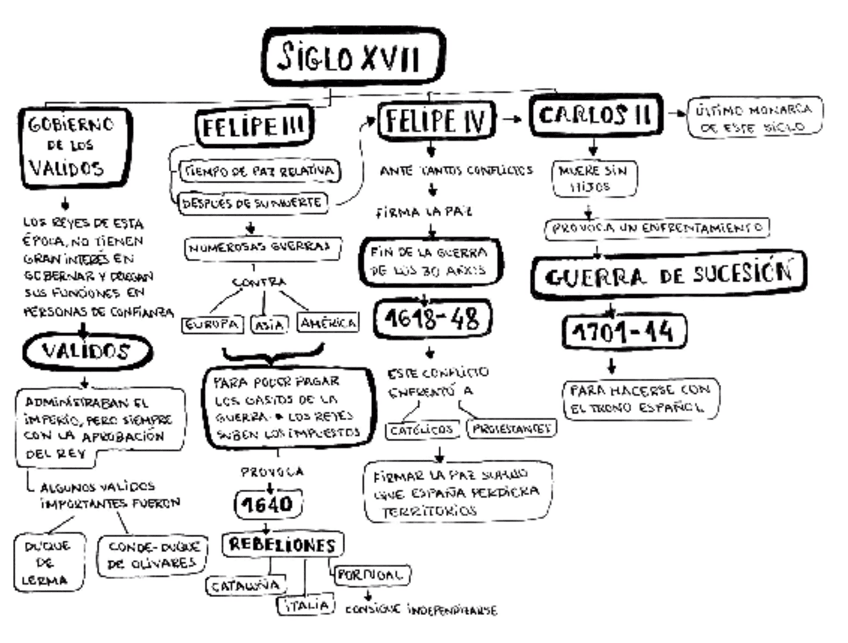 SIGLO XVII
GOBIERNO
DE LOS
VALIDOS
LOS REYES DE ESTA
ÉPOCA, NO TIENEN
GRAN INTERÉS EN
GOBERNAR Y DELEGAN
SUS FUNCIONES EN
PERSONAS DE CONFIANZA
VALIDOS
ADMINISTRABAN EL
IMPERIO, PERO SIEMPRE
CON LA APROBACIÓN
DEL REY
ALGUNOS VALIDOS
IMPORTANTES FUERON
DUQUE
DE
LERMA
CONDE-DUQUE
DE OLIVARES
FELIPE III
TIEMPO DE PAZ RELATIVA
DESPUES DE SU MUERTE
NUMEROSAS GUERRAS
CONTRA
EUROPA
ASIA
AMÉRICA
PARA PODER PAGAR
LOS GASTOS DE LA
GUERRA LOS REYES
SUBEN LOS IMPUESTOS
PROVOCA
1640
REBELIONES
CATALUÑA
ITALIA
PORTUGAL
CONSIGUE INDEPENDIZARSE
FELIPE IV
ANTE TANTOS CONFLICTOS
FIRMA LA PAZ
FIN DE LA GUERRA
DE LOS 30 AÑOS
1618-48
ESTE CONFLICTO
ENFRENTÓ A
CATÓLICOS
PROTESTANTES
FIRMAR LA PAZ
QUE ESPAÑA PERDIERA
TERRITORIOS
CARLOS II
ÚLTIMO MONARCA
DE ESTE SIGLO
MUERE SIN
HIJOS
PROVOCA UN ENFRENTAMIENTO
GUERRA DE SUCESIÓN
1701-14
PARA HACERSE CON
EL TRONO ESPAÑOL